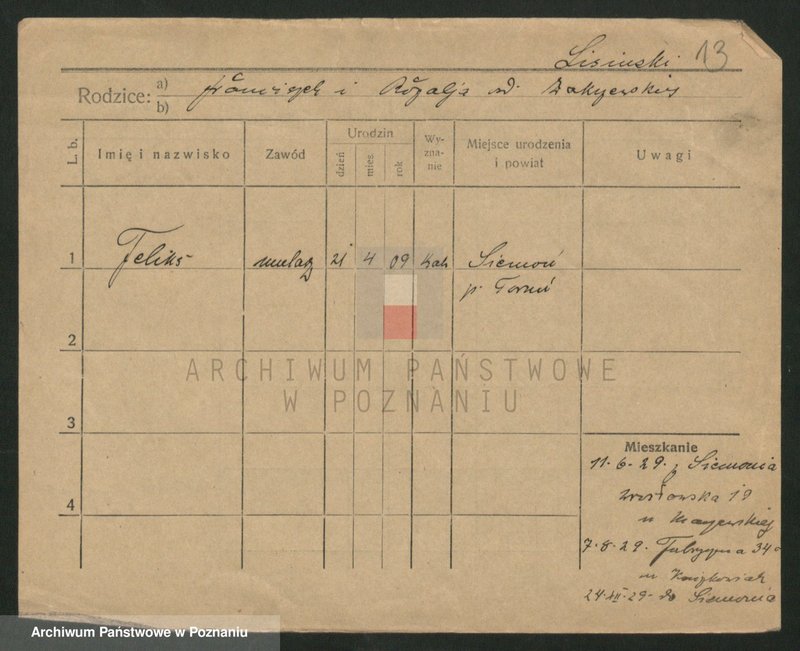 Lisinski 13
Rodzice: a) Franciszek i Rozalja od.
b)
L. b. Imię i nazwisko Zawód Urodzin dzień mies. rok Wy-zna-nie Miejsce urodzenia i powiat Uwagi
1 Feliks mularz 21 4 09 kat Siemoń
p. Toruń
2
ARCHIWUM PAŃSTWOWE
W POZNANIU
3
Mieszkanie
11.6.29. z Siemonia
19
4
u
7.8.29. 34
24.XII.29. do Siemonia
Archiwum Państwowe w Poznaniu